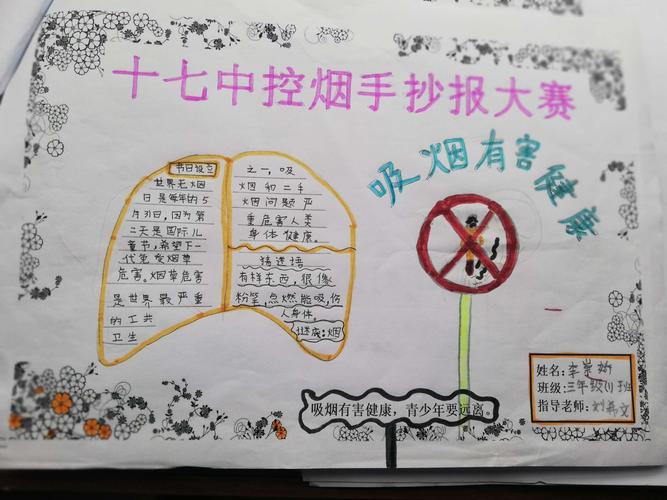 十七中控烟手抄报大赛
吸烟有害健康
节日设立
世界无烟
日是每年的5
月31日,因为第
二天是国际儿
童节,希望下一
代免受烟草
危害。烟草危害
是世界最严重
的工共
卫生
之一,吸
烟和二手
烟问题严
重危害人类
身体健康。
猜迷语
有样东西,很像
粉笔,点燃能吸,伤
人身体。
谜底:烟
吸烟有害健康,青少年要远离。
姓名:李崇
班级:三年级(1)班
指导老师:刘文